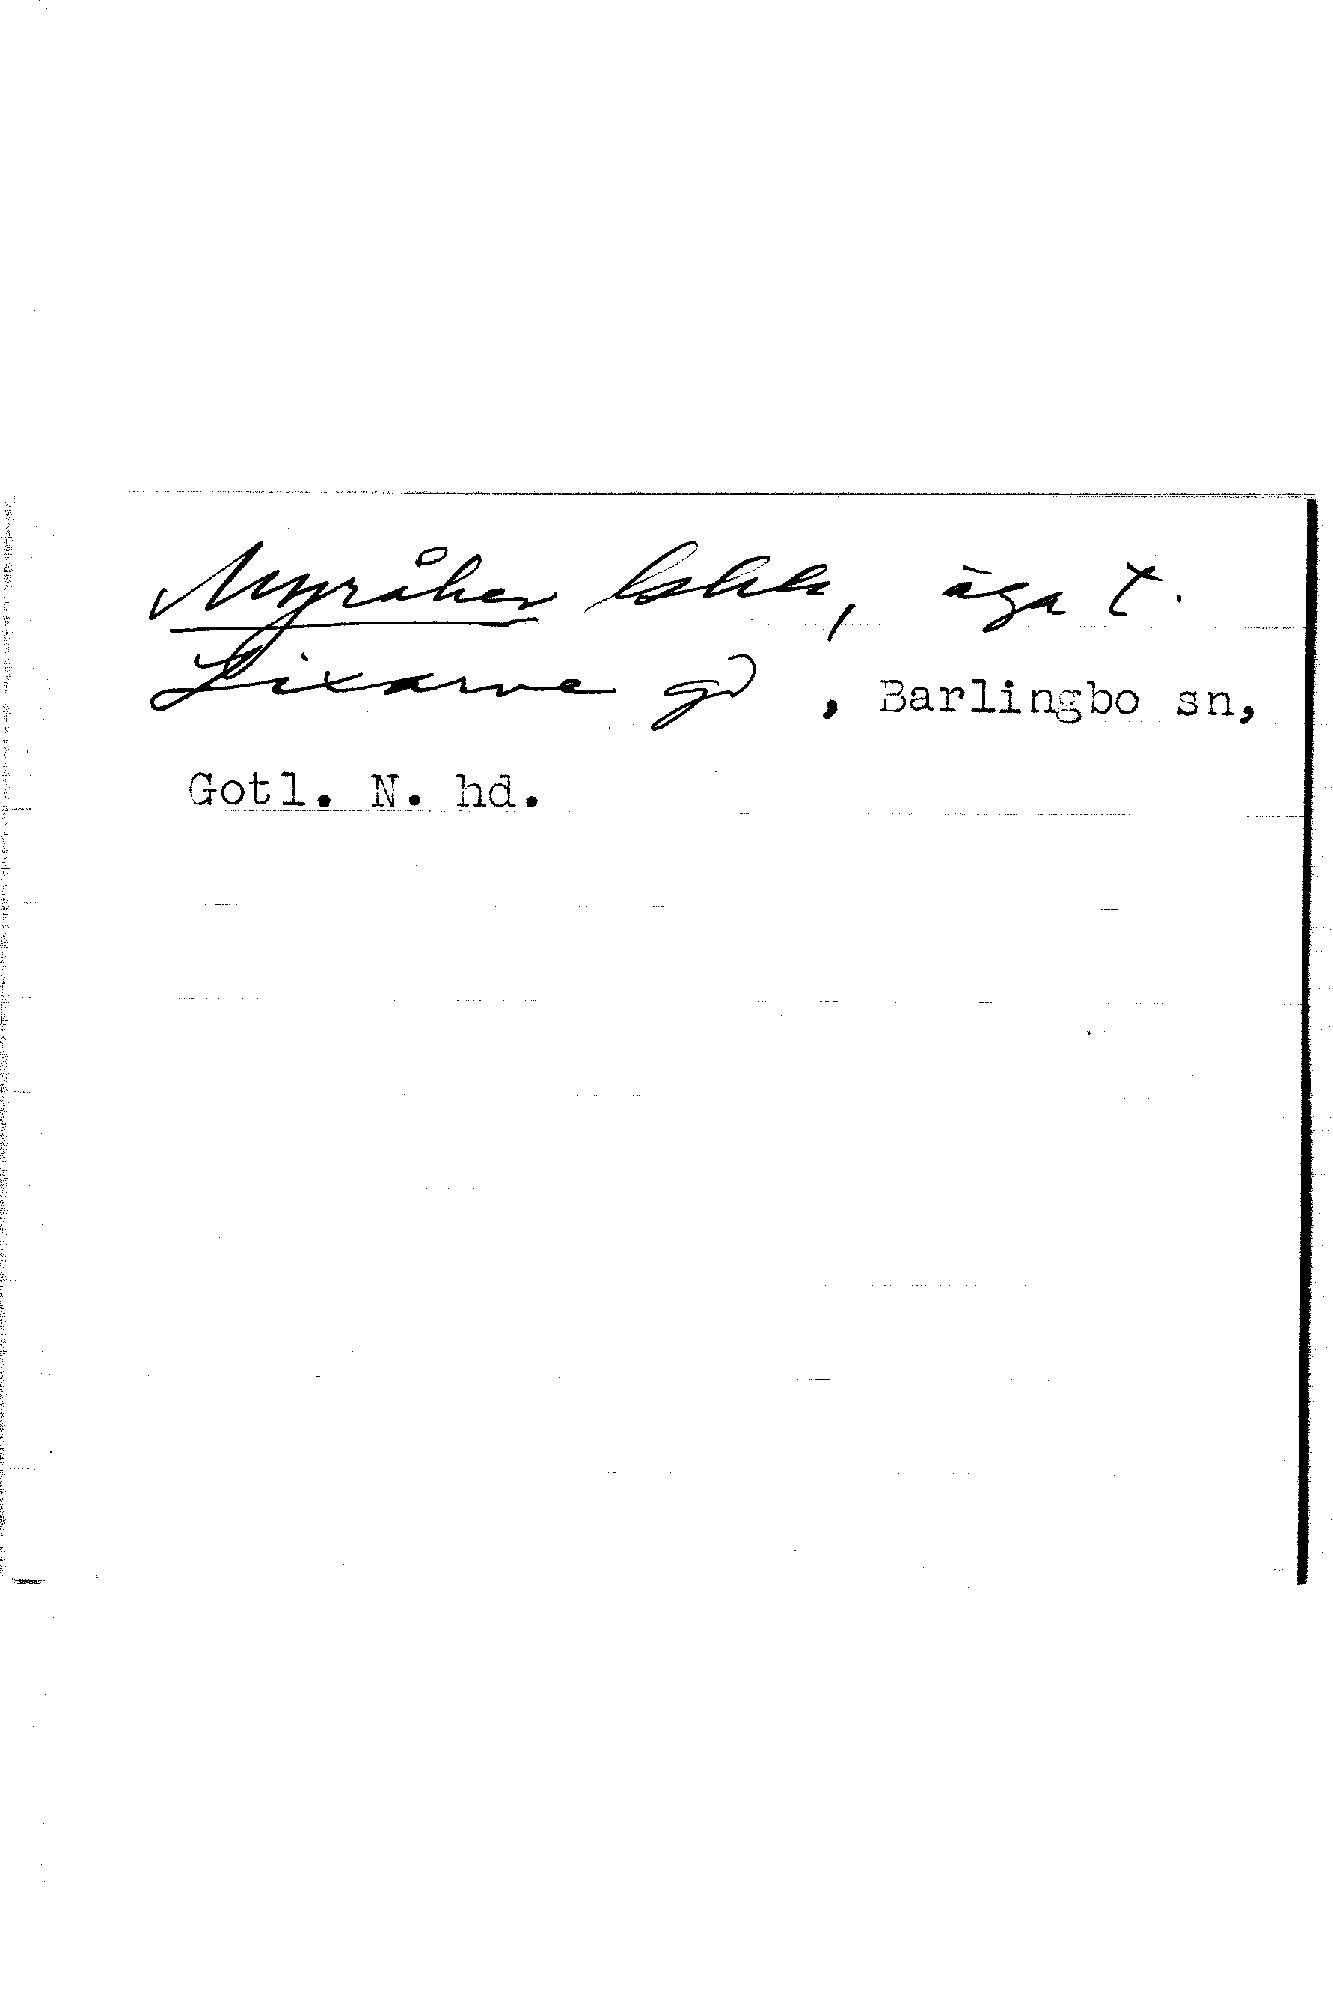 Myråker äga t.
Lixarve gd , Barlingbo sn,
Gotl. N. hd.